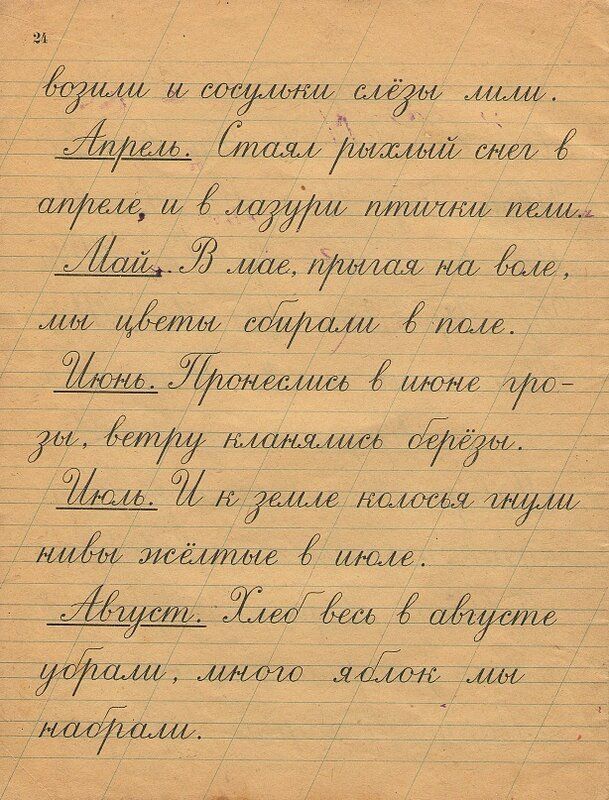 24
возили и сосульки слёзы лили.
Апрель. Стаял рыхлый снег в
апреле, и в лазури птички пели.
Май. В мае, прыгая на воле,
мы цветы сбирали в поле.
Июнь. Пронеслись в июне гро-
зы, ветру кланялись берёзы.
Июль. И к земле колосья гнули
нивы жёлтые в июле.
Август. Хлеб весь в августе
убрали, много яблок мы
набрали.